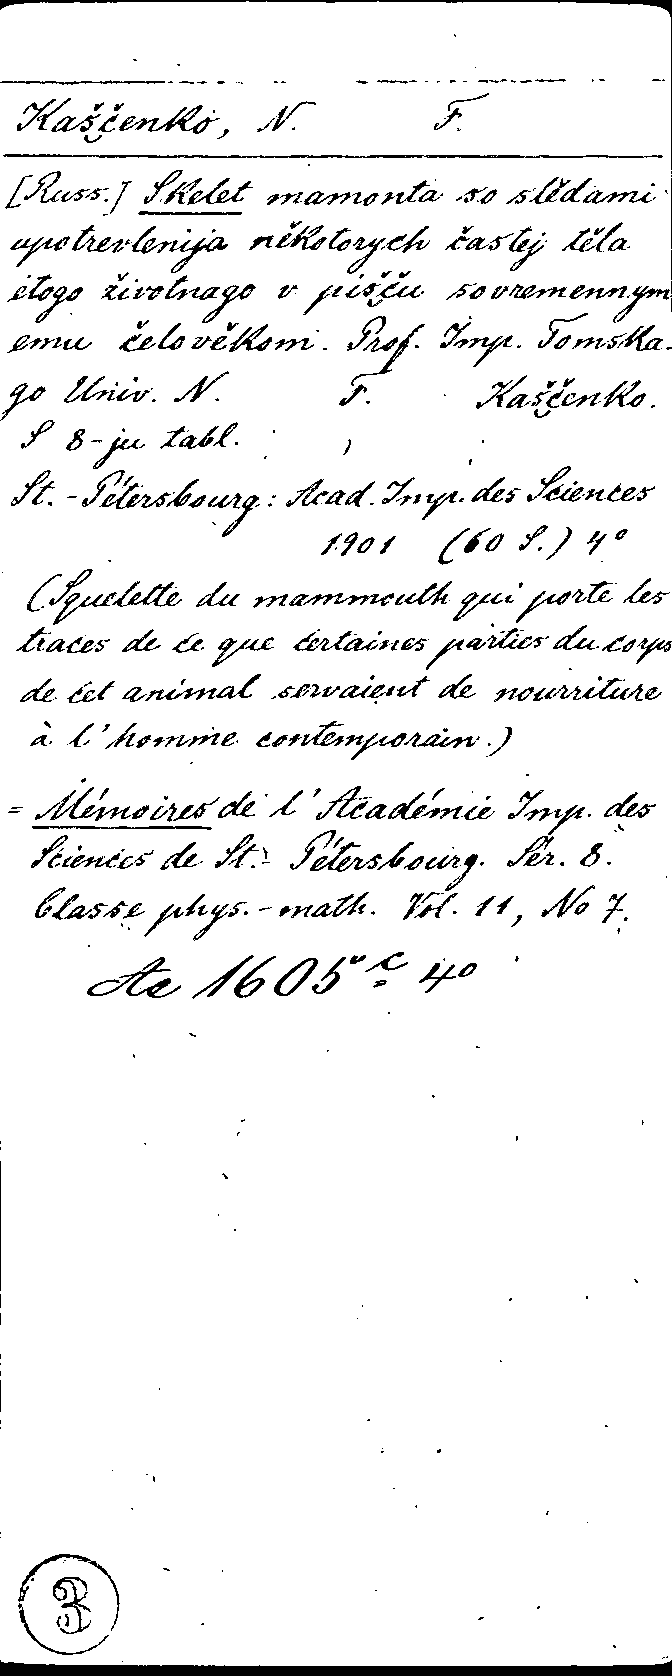 Kaščenko, N. F.
[Russ.] Skelet mamonta so slědami
upotrevlenija někotorych častej těla
etogo životnago v pišču sovremennym
emu čelověkom. Prof. Imp. Tomska-
go Univ. N. F. Kaščenko.
S 8-ju tabl.
St.-Pétersbourg: Acad. Imp. des Sciences
1901 (60 S.) 4°
(Squelette du mammouth qui porte les
traces de ce que certaines parties du corps
de cet animal servaient de nourriture
à l'homme contemporain.)
= Mémoires de l'Académie Imp. des
Sciences de St.-Pétersbourg. Sér. 8.
Classe phys.-math. Vol. 11, No 7.
Ac 1605 c 4°
3